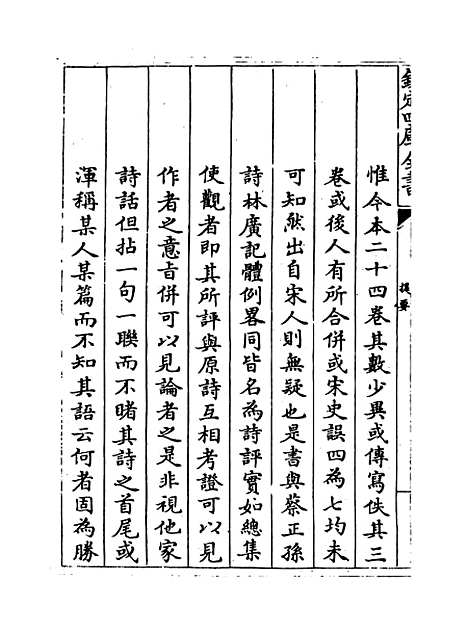 欽定四庫全書
提要
惟今本二十四卷其數少異或傳寫佚其三
卷或後人有所合併或宋史誤四為七均未
可知然出自宋人則無疑也是書與蔡正孫
詩林廣記體例畧同皆名為詩評實如總集
使觀者即其所評與原詩互相考證可以見
作者之意旨併可以見論者之是非視他家
詩話但拈一句一聯而不睹其詩之首尾或
渾稱某人某篇而不知其語云何者固為勝